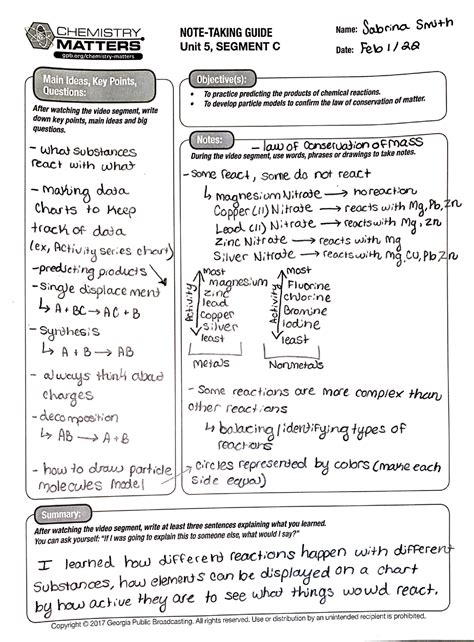 CHEMISTRY
MATTERS
gpb.org/chemistry-matters
NOTE-TAKING GUIDE
Unit 5, SEGMENT C
Name: Sabrina Smith
Date: Feb 1/22
Main Ideas, Key Points,
Questions:
After watching the video segment, write
down key points, main ideas and big
questions.
- what substances
react with what
- making data
charts to keep
track of data
(ex, Activity series chart)
- predicting products
- single displacement
↳ A + BC → AC + B
- synthesis
↳ A + B → AB
- always think about
charges
- decomposition
↳ AB → A + B
- how to draw particle
molecules model
Objective(s):
• To practice predicting the products of chemical reactions.
• To develop particle models to confirm the law of conservation of matter.
Notes:
- law of conservation of mass
During the video segment, use words, phrases or drawings to take notes.
- Some react, some do not react
↳ magnesium Nitrate → no reaction
Copper (II) Nitrate → reacts with Mg, Pb, Zn
Lead (II) Nitrate → reacts with Mg, Zn
Zinc Nitrate → reacts with Mg
Silver Nitrate → reacts with Mg, Cu, Pb, Zn
Activity
most
magnesium
zinc
lead
copper
silver
least
Metals
Activity
most
Fluorine
chlorine
Bromine
Iodine
least
Nonmetals
- Some reactions are more complex than
other reactions
↳ balacing / identifying types of
reactions
→ circles represented by colors (make each
side equal)
Summary:
After watching the video segment, write at least three sentences explaining what you learned.
You can ask yourself: "If I was going to explain this to someone else, what would I say?"
I learned how different reactions happen with different
substances, how elements can be displayed on a chart
by how active they are to see what things would react.
Copyright © 2017 Georgia Public Broadcasting. All rights reserved. Use or distribution by an unintended recipient is prohibited.